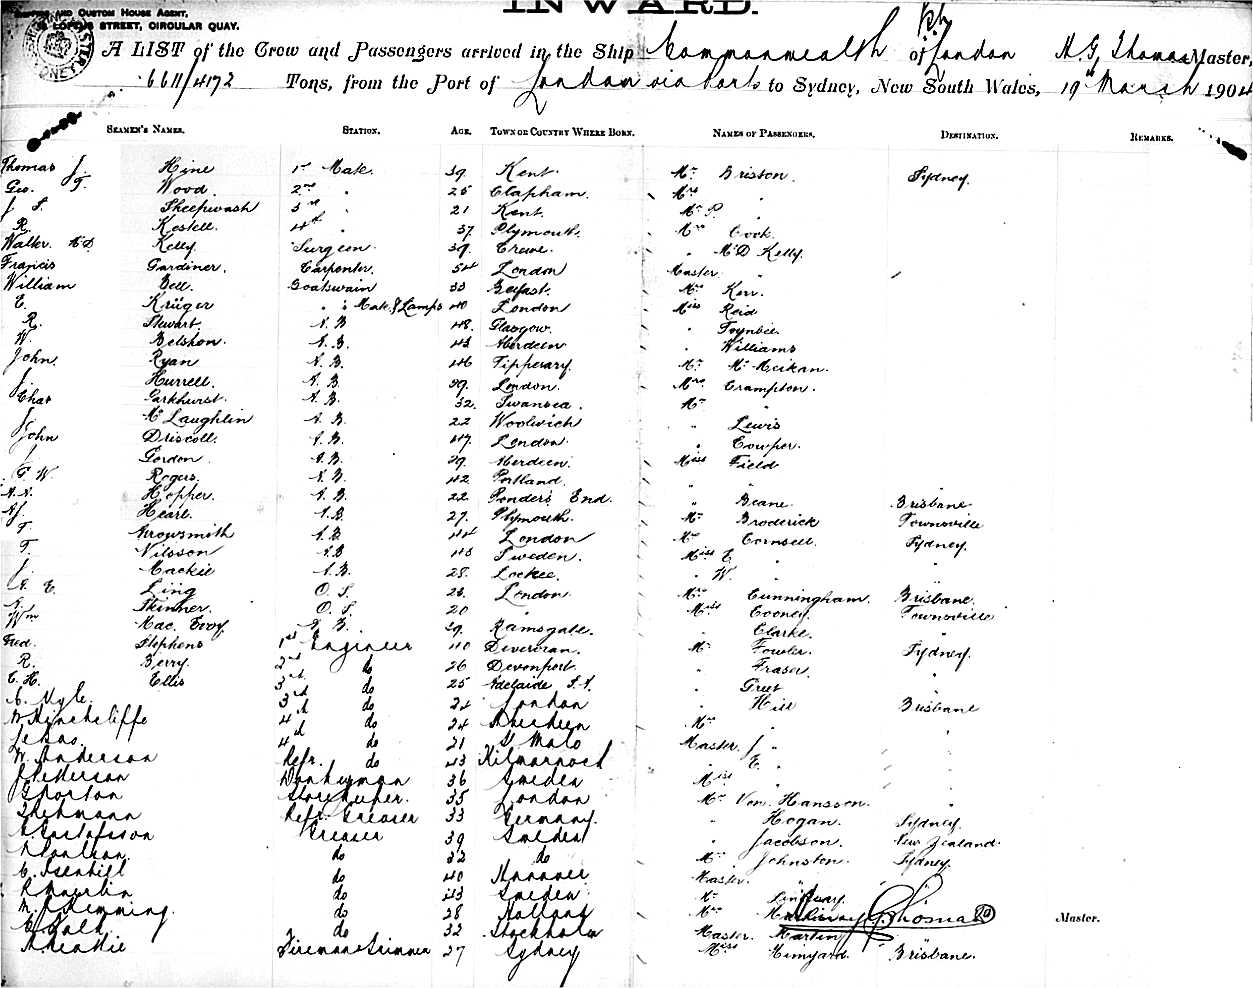 INWARD.
AND CUSTOM HOUSE AGENT,
LOFTUS STREET, CIRCULAR QUAY.
A LIST of the Crew and Passengers arrived in the Ship Commonwealth of London H. G. Thomas Master,
6611/4172 Tons, from the Port of London via Ports to Sydney, New South Wales, 19th March 1904
SEAMEN'S NAMES. STATION. AGE. TOWN OR COUNTRY WHERE BORN. NAMES OF PASSENGERS. DESTINATION. REMARKS.
Thomas J. Hine 1st Mate 39 Kent Mr Brisson Sydney
Geo. T. Wood 2nd " 25 Clapham Mrs "
J. S. Sheepwash 3rd " 21 Kent Mr P. "
R. Kestell 4th " 37 Plymouth Mrs Cook
Walter M.D. Kelly Surgeon 39 Crewe " McD Kelly
Francis Gardiner Carpenter 54 London Master "
William Bell Boatswain 33 Belfast Mr Kerr
E. Krüger " " Mate & Lamps 40 London Miss Reid
R. Stewart A.B. 48 Glasgow " Toynbee
W. Belshon A.B. 43 Aberdeen " Williams
John Ryan A.B. 46 Tipperary Mr McMeikan
J. Hurrell A.B. 39 London Mrs Crampton
Chas Parkhurst A.B. 32 Swansea Mr "
J. McLaughlin A.B. 22 Woolwich " Lewis
John Driscoll A.B. 47 London " Cowper
J. Gordon A.B. 39 Aberdeen Miss Field
G. W. Rogers A.B. 42 Portland " "
A.A. Hopper A.B. 22 Ponders End " Beane Brisbane
Hearl A.B. 27 Plymouth Mr Broderick Townsville
T. Arrowsmith A.B. 44 London Mrs Cornsell Sydney
T. Nilsson A.B. 43 Sweden Miss E. " "
J. Mackie A.B. 28 Lockee " W. " "
A. E. Ling O.S. 23 London Mrs Cunningham Brisbane
A. Skinner O.S. 20 " Miss Cooney Townsville
Wm Mac. Evoy A.B. 39 Ramsgate " Clarke "
Fred. Stephens 1st Engineer 40 Mr Fowler Sydney
R. Berry 2nd do 26 Devonport " Fraser "
E. H. Ellis 3rd do 25 Adelaide S.A. " Greet "
3rd do 24 London " Hill Brisbane
Hinchcliffe 4th do 24 Aberdeen Mrs " "
4th do 21 St Malo Master J. " "
W. Anderson Refr. do 43 Kilmarnock " E. " "
Petterson Donkeyman 36 Sweden Miss " "
G. Norton Storekeeper 35 London Mr Von Hansson "
Refr. Greaser 33 Germany " Hogan Sydney
Gustafsson Greaser 39 Sweden " Jacobson New Zealand
do 32 do Mr Johnston Sydney
do 40 Hanover Master " "
do 43 Sweden Mr Lindsay
Hemming do 28 Holland Mrs Thomas Master.
do 32 Stockholm Master Martin
Fireman & Trimmer 27 Sydney Miss Himyard Brisbane